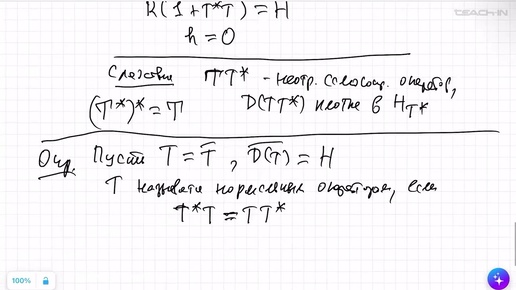 TEACH-IN
R(1+T*T) = H
h = 0
Следствие TT* - неотр. самосопр. оператор,
(T*)* = T D(TT*) плотно в H_{T*}
Опр. Пусть T = \overline{T}, \overline{D(T)} = H
T называется нормальным оператором, если
T*T = TT*
100%